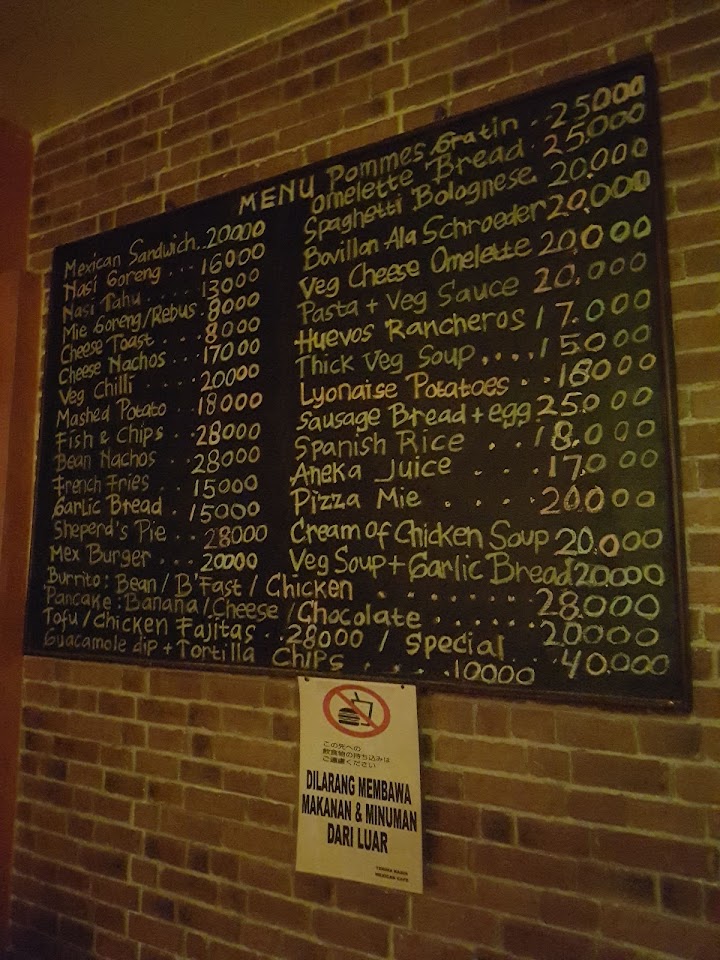 MENU
Mexican Sandwich..20000
Nasi Goreng ... 16000
Nasi Tahu .... 13000
Mie Goreng/Rebus. 8000
Cheese Toast ... 8000
Cheese Nachos ... 17000
Veg Chilli ..... 20000
Mashed Potato .. 18000
Fish & Chips .. 28000
Bean Nachos ... 28000
French Fries ... 15000
Garlic Bread . 15000
Sheperd's Pie .. 28000
Mex Burger ... 20000
Pommes Gratin .. 25000
Omelette Bread . 25.000
Spaghetti Bolognese. 20.000
Bovillon Ala Schroeder 20,000
Veg Cheese Omelette 20,000
Pasta + Veg Sauce 20.000
Huevos Rancheros 17.000
Thick Veg Soup .... 15000
Lyonaise Potatoes .. 18000
Sausage Bread + egg 25.000
Spanish Rice ... 18,000
Aneka Juice .... 17.000
Pizza Mie ..... 20000
Cream of Chicken Soup 20.000
Veg Soup + Garlic Bread 20000
Burrito: Bean / B'Fast / Chicken ....... 28.000
Pancake: Banana / Cheese / Chocolate ...... 20000
Tofu / Chicken Fajitas .. 28000 / Special 40.000
Guacamole dip + Tortilla Chips .... 10000
飲食物の持ち込みは
ご遠慮ください
DILARANG MEMBAWA
MAKANAN & MINUMAN
DARI LUAR